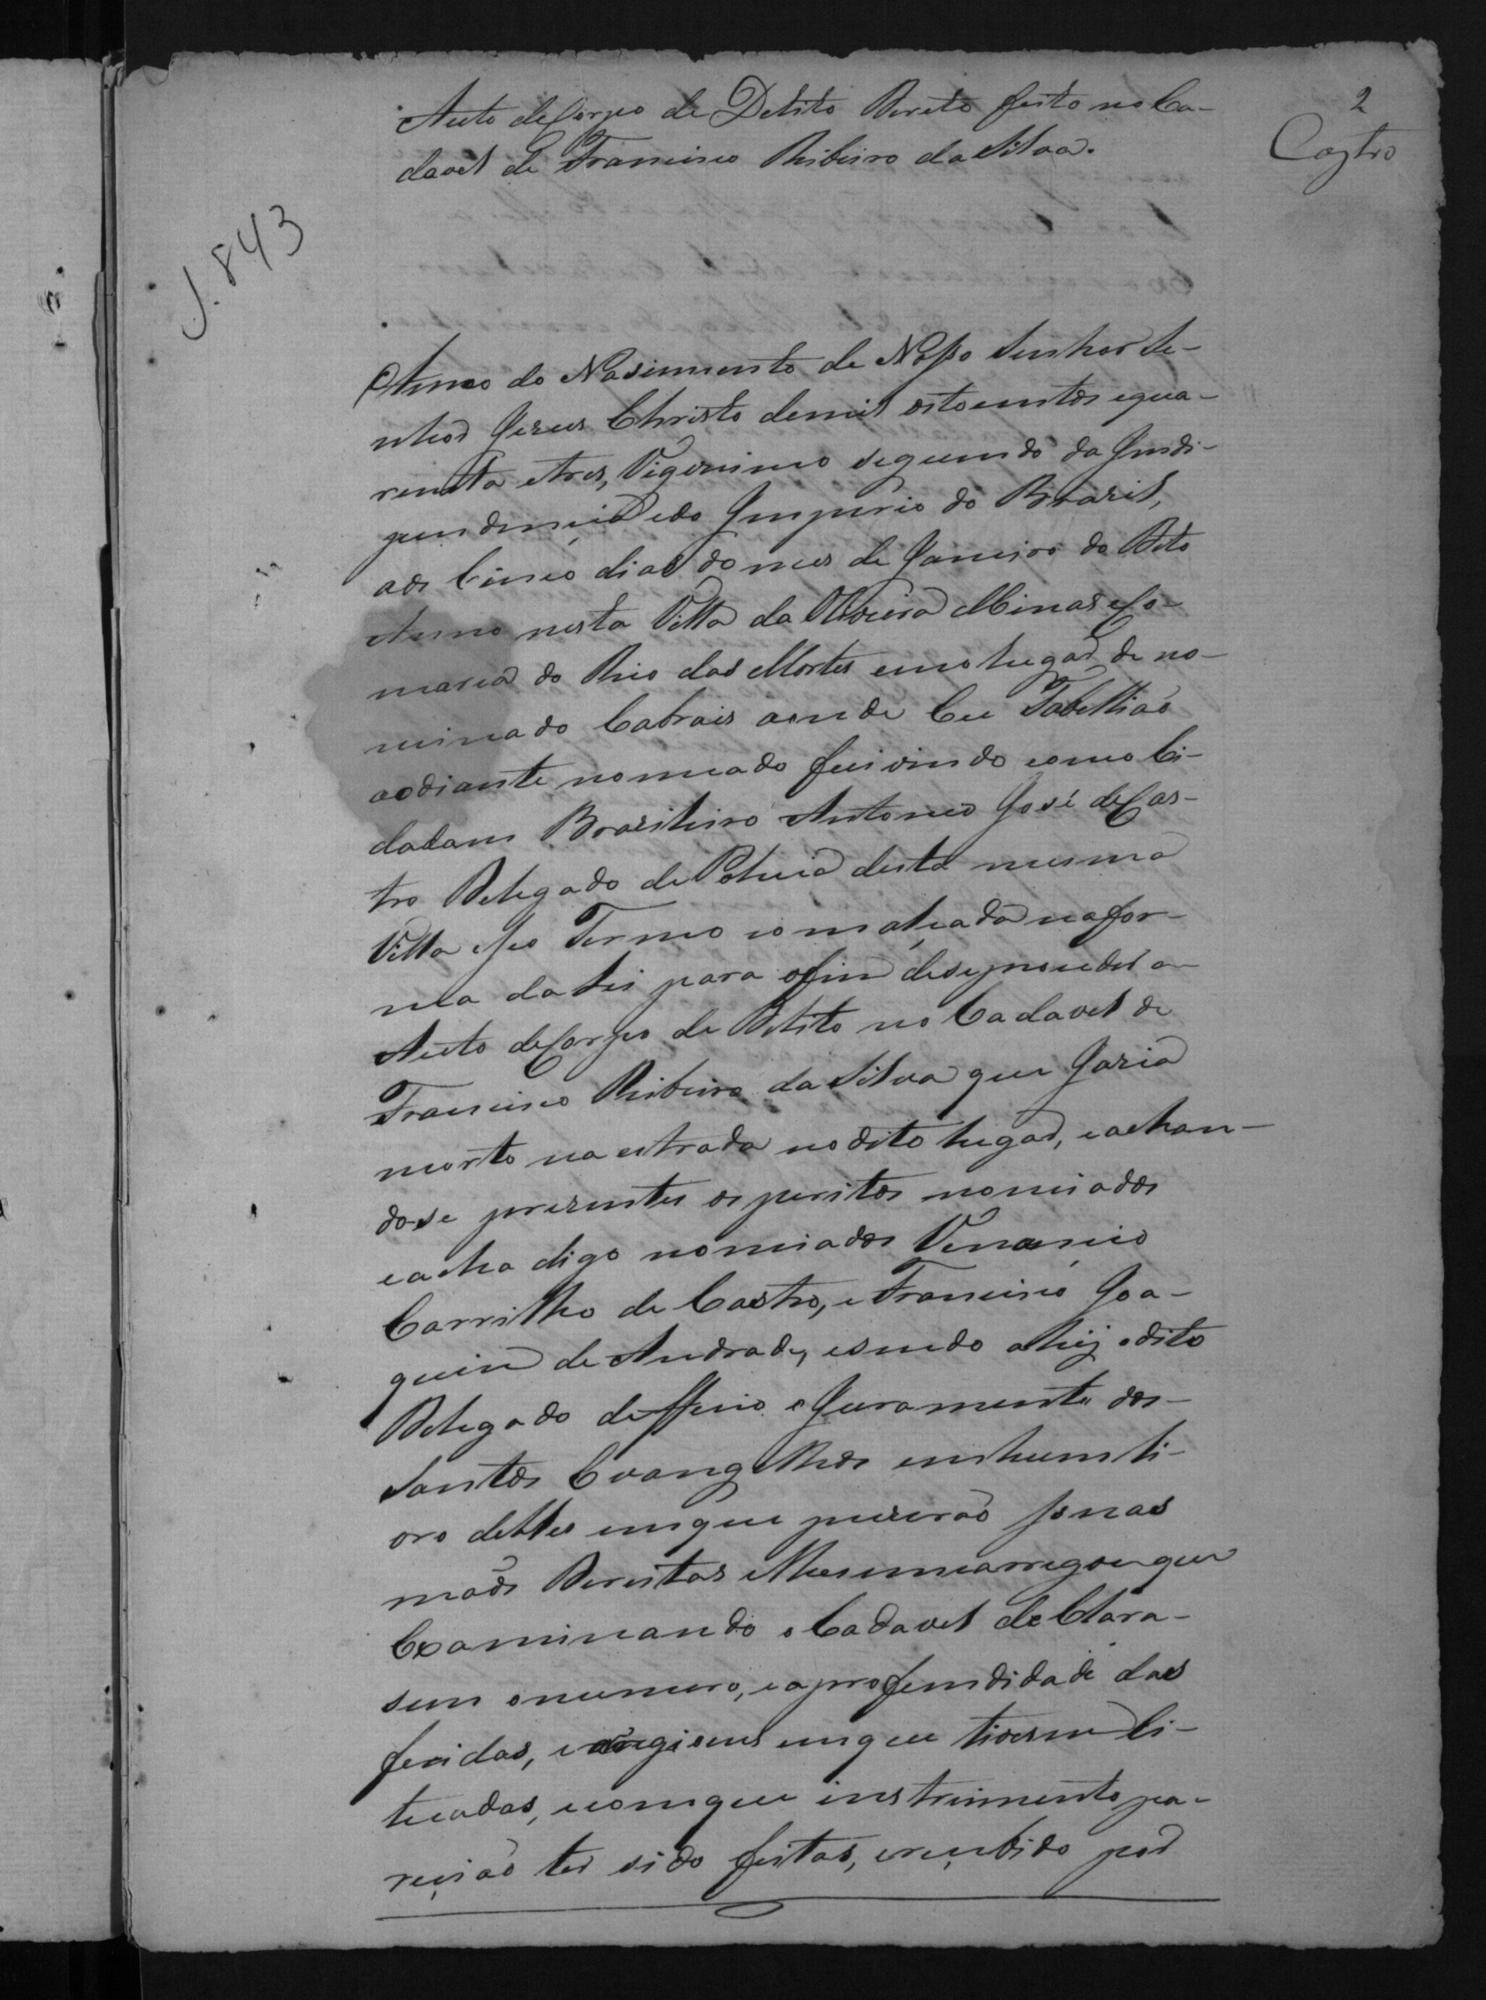 2
Castro
Auto de Corpo de Delito Direto feito no Ca-
daver de Francisco Ribeiro da Silva.
J. 843
Anno do Nascimento de Nosso Senhor Se-
nhor Jezus Christo de mil oitocentos e qua-
renta e tres, Vigessimo segundo da Inde-
pendencia e do Imperio do Brazil,
aos Cinco dias do mes de Janeiro do Dito
Anno nesta Villa da Oliveira Minas e Co-
marca do Rio das Mortes em o lugar de no-
minado Cabrais aonde Eu Tabellião
aodiante nomeado fui vindo como Ci-
dadam Brasileiro Antonio José de Cas-
tro Delegado de Policia desta mesma
Villa e seo Termo comalçada na for-
ma da Lei para o fim de se proceder a
Auto de Corpo de Delito no Cadaver de
Francisco Ribeiro da Silva que Jazia
morto na estrada no dito lugar, e achan-
dose prezentes os peritos nomiados
eacha digo nomiados Venancio
Carrilho de Castro, e Francisco Joa-
quim de Andrade, e sendo ahi o dito
Delegado defferio o Juramento dos
Santos Evangelhos em hum li-
vro delles em que puzerão suas
mãos Direitas e lhes encarregou que
Examinando o Cadaver declara-
sem o numero, e a profundidade das
feridas, e regiens em que tiverem si-
tuadas, e com que instrumento pa-
recião ter sido feitas, e recebido por